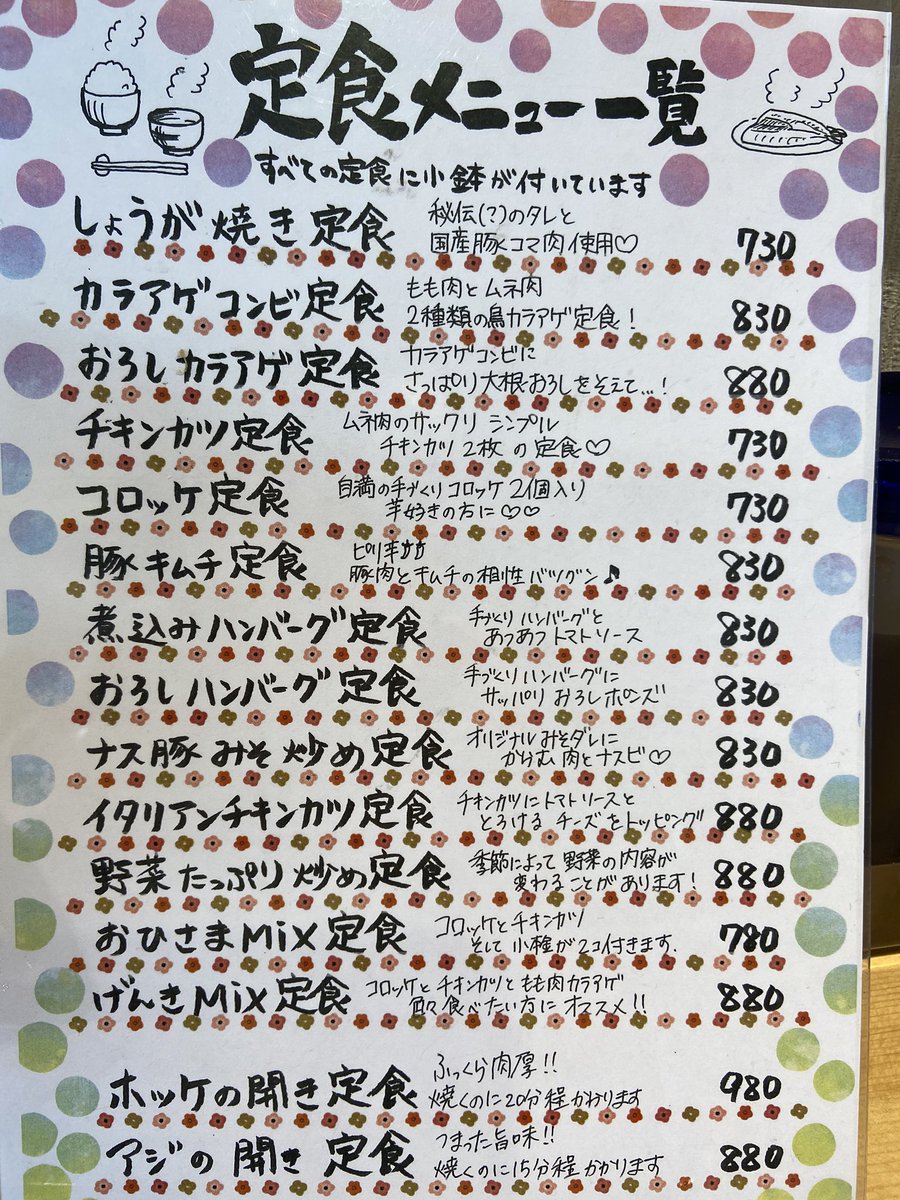 定食メニュー一覧
すべての定食に小鉢が付いています
しょうが焼き定食 秘伝(?)のタレと
国産豚コマ肉使用♡ 730
カラアゲコンビ定食 もも肉とムネ肉
2種類の鳥カラアゲ定食! 830
おろしカラアゲ定食 カラアゲコンビに
さっぱり大根おろしをそえて…! 880
チキンカツ定食 ムネ肉のサックリ シンプル
チキンカツ 2枚の定食♡ 730
コロッケ定食 自満の手づくりコロッケ2個入り
芋好きの方に♡♡ 730
豚キムチ定食 ピリ辛
豚肉とキムチの相性バツグン♪ 830
煮込みハンバーグ定食 手づくりハンバーグと
あつあつトマトソース 830
おろしハンバーグ定食 手づくりハンバーグに
サッパリおろしポンズ 830
ナス豚みそ炒め定食 オリジナルみそダレに
からむ肉とナスビ♡ 830
イタリアンチキンカツ定食 チキンカツにトマトソースと
とろけるチーズをトッピング 880
野菜たっぷり炒め定食 季節によって野菜の内容が
変わることがあります! 880
おひさまMix定食 コロッケとチキンカツ
そして小鉢が2コ付きます. 780
げんきMix定食 コロッケとチキンカツともも肉カラアゲ
食べたい方にオススメ!! 880
ホッケの開き定食 ふっくら肉厚!!
焼くのに20分程かかります 980
アジの開き定食 つまった旨味!!
焼くのに15分程かかります 880